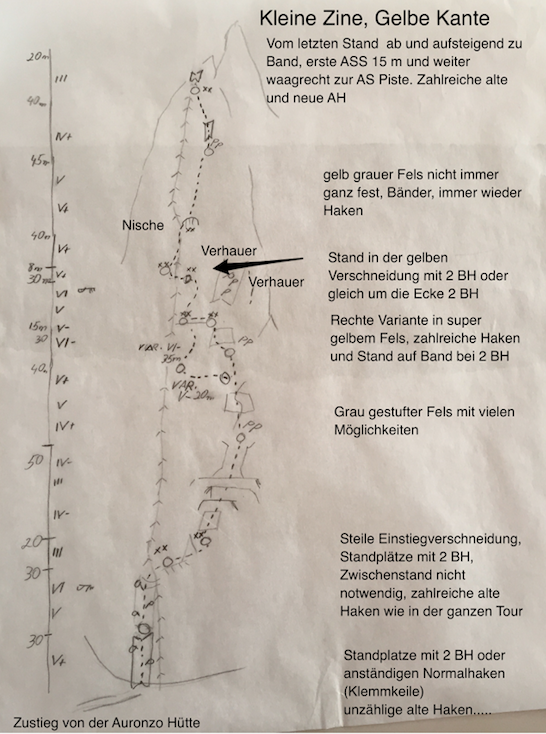 Kleine Zine, Gelbe Kante
Vom letzten Stand ab und aufsteigend zu
Band, erste ASS 15 m und weiter
waagrecht zur AS Piste. Zahlreiche alte
und neue AH
20m
III
40m
IV+
45m
V
V+
40m
V+
8m
V+
30m
VI
15m
V-
30
VI-
40
V+
V
IV+
50
IV-
III
IV-
20
III
30
VI
V
30
V+
xx
PP
gelb grauer Fels nicht immer
ganz fest, Bänder, immer wieder
Haken
Nische
xx
Verhauer
Verhauer
xx
xx
PP
P
Stand in der gelben
Verschneidung mit 2 BH oder
gleich um die Ecke 2 BH
xx
xx
PP
VAR. VI-
35m
VAR.
V- 20m
Rechte Variante in super
gelbem Fels, zahlreiche Haken
und Stand auf Band bei 2 BH
PP
Grau gestufter Fels mit vielen
Möglichkeiten
xx
xx
Steile Einstiegverschneidung,
Standplätze mit 2 BH,
Zwischenstand nicht
notwendig, zahlreiche alte
Haken wie in der ganzen Tour
Standplatze mit 2 BH oder
anständigen Normalhaken
(Klemmkeile)
unzählige alte Haken.....
Zustieg von der Auronzo Hütte